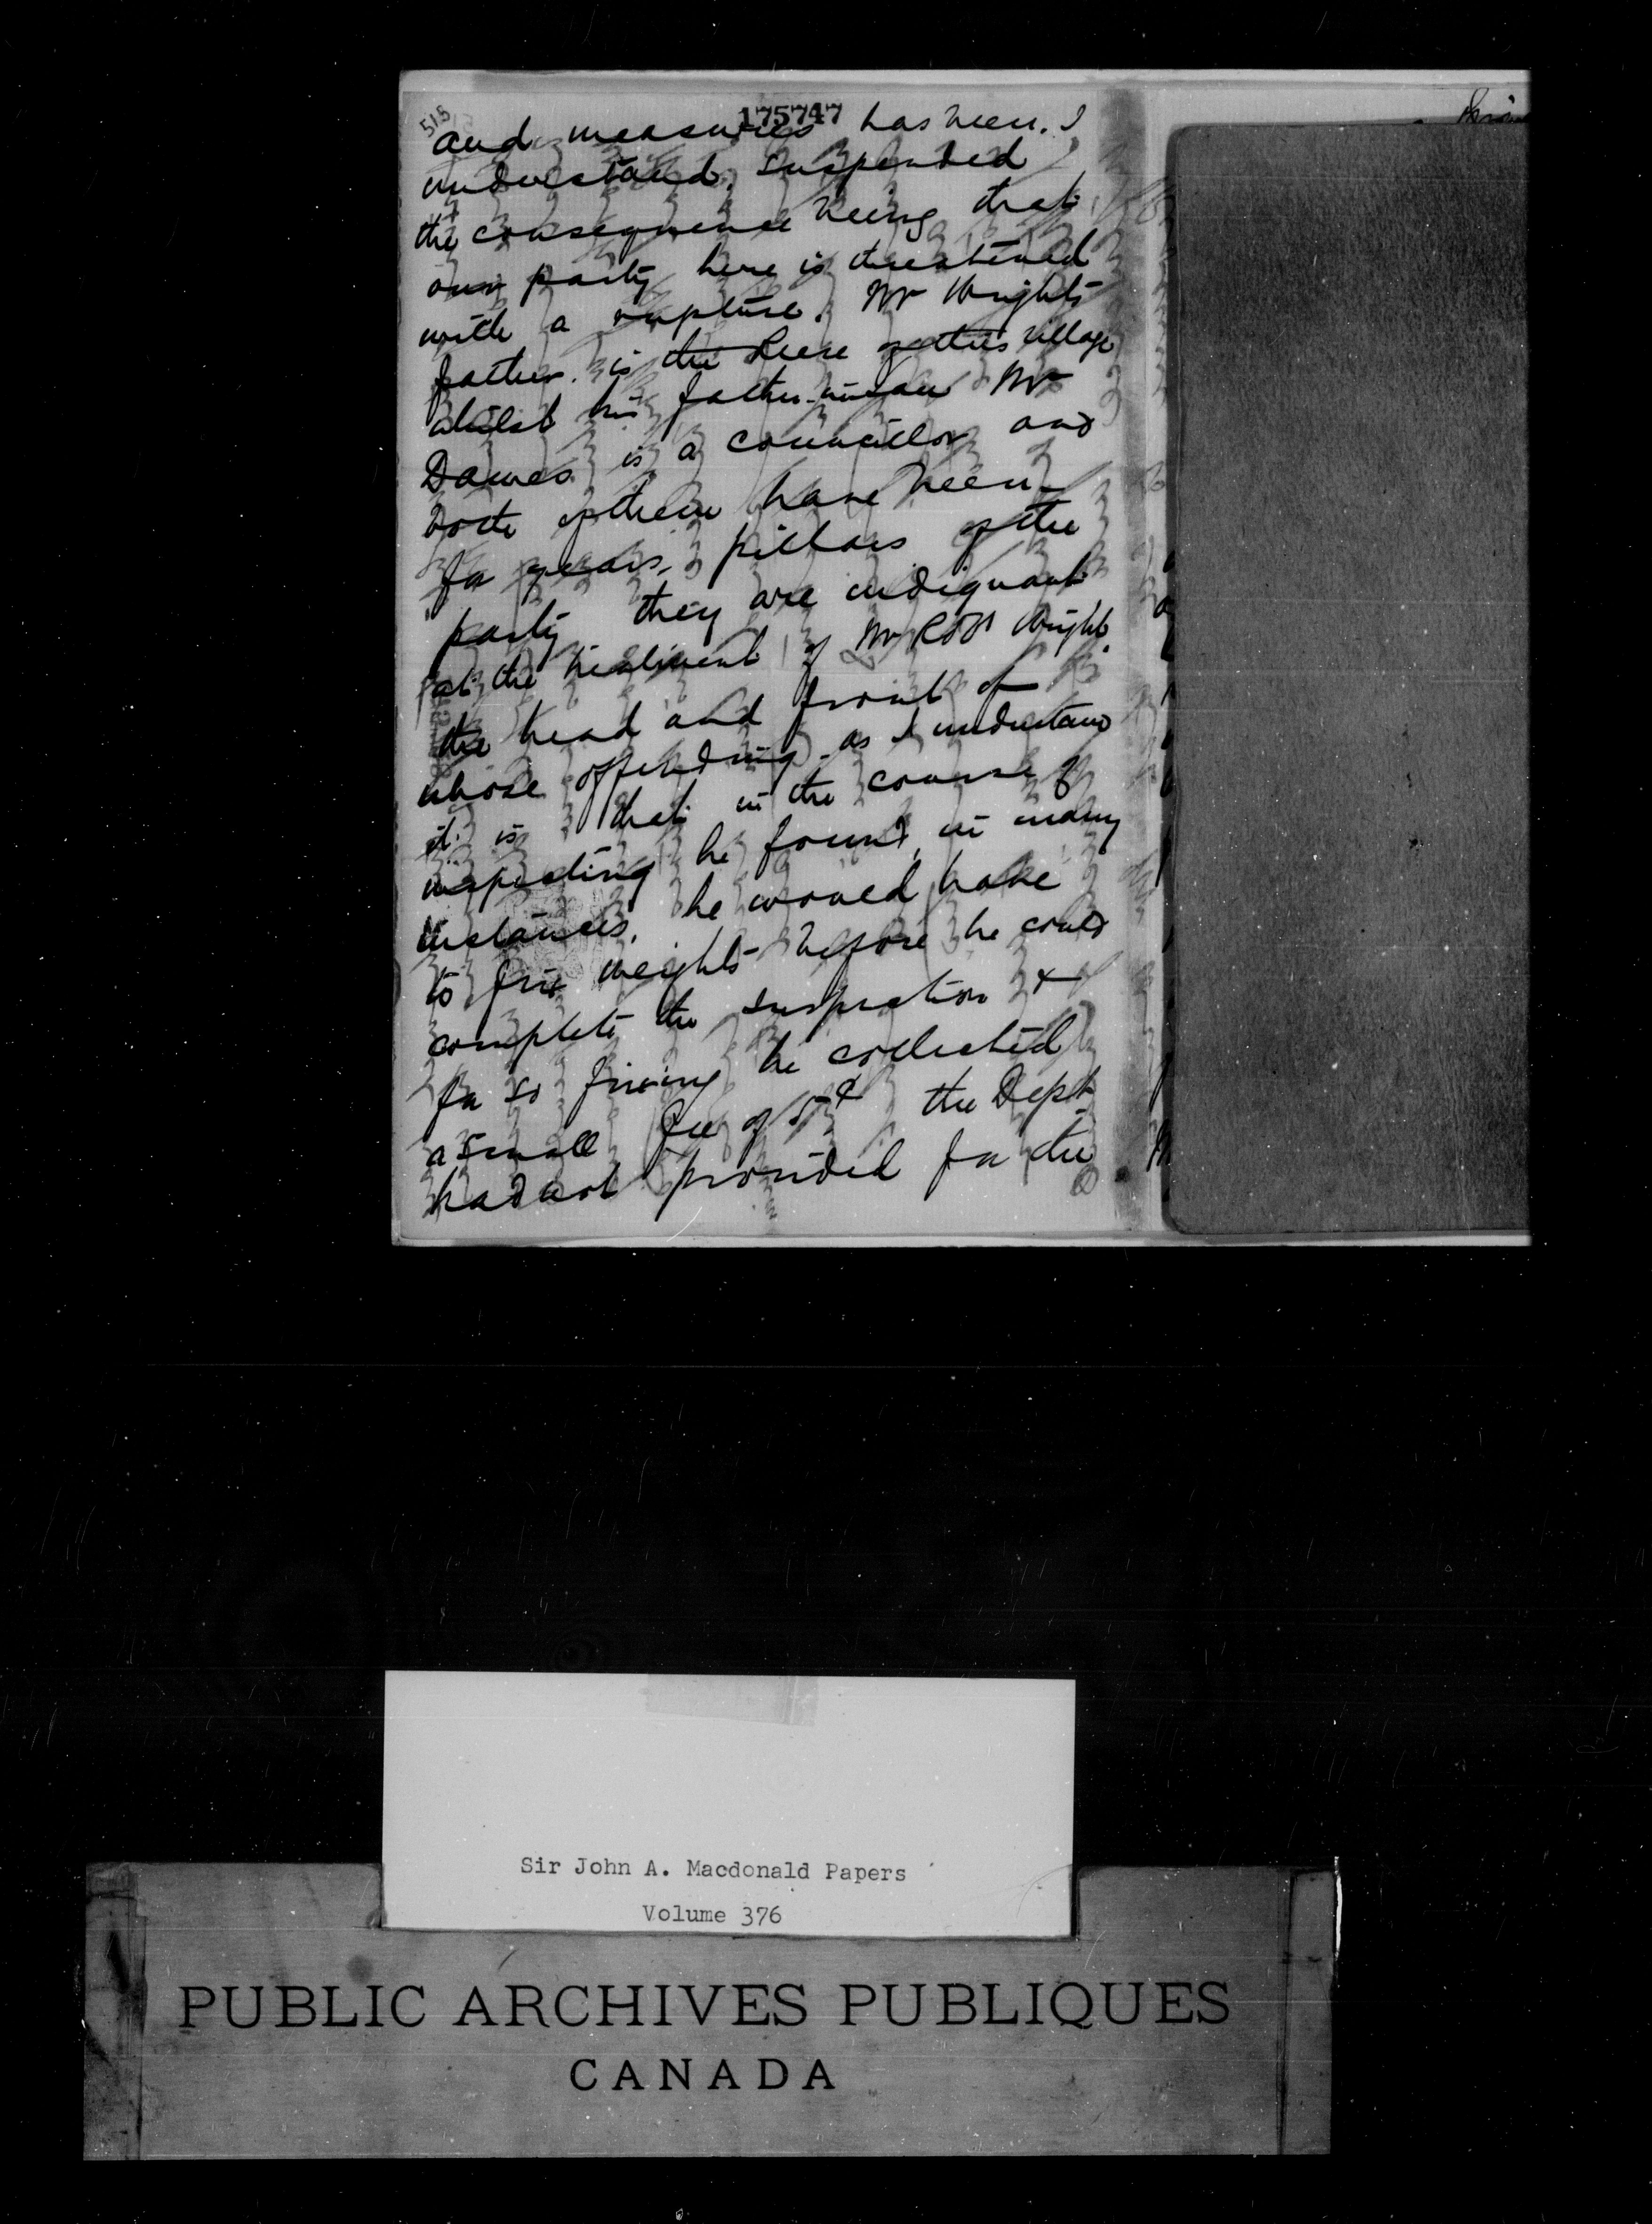 518
175747
and measures has been. I
understand. suspended
the consequence being that
our party here is threatened
with a rupture. Mr Wrights
father is the Reeve of this village
whilst his father-in-law Mr
Dawes is a councillor and
both of them have been
for years, pillars of the
party they are indignant
at the treatment of Mr Wright
the head and front of
whose offending as I understand
it is that in the course of
inspecting he found, in many
instances, he would have
to fix weights before he could
complete the inspection &
for so fixing he collected
a small fee of 5¢ the Dept
had not provided for the
Sir John A. Macdonald Papers
Volume 376
PUBLIC ARCHIVES PUBLIQUES
CANADA